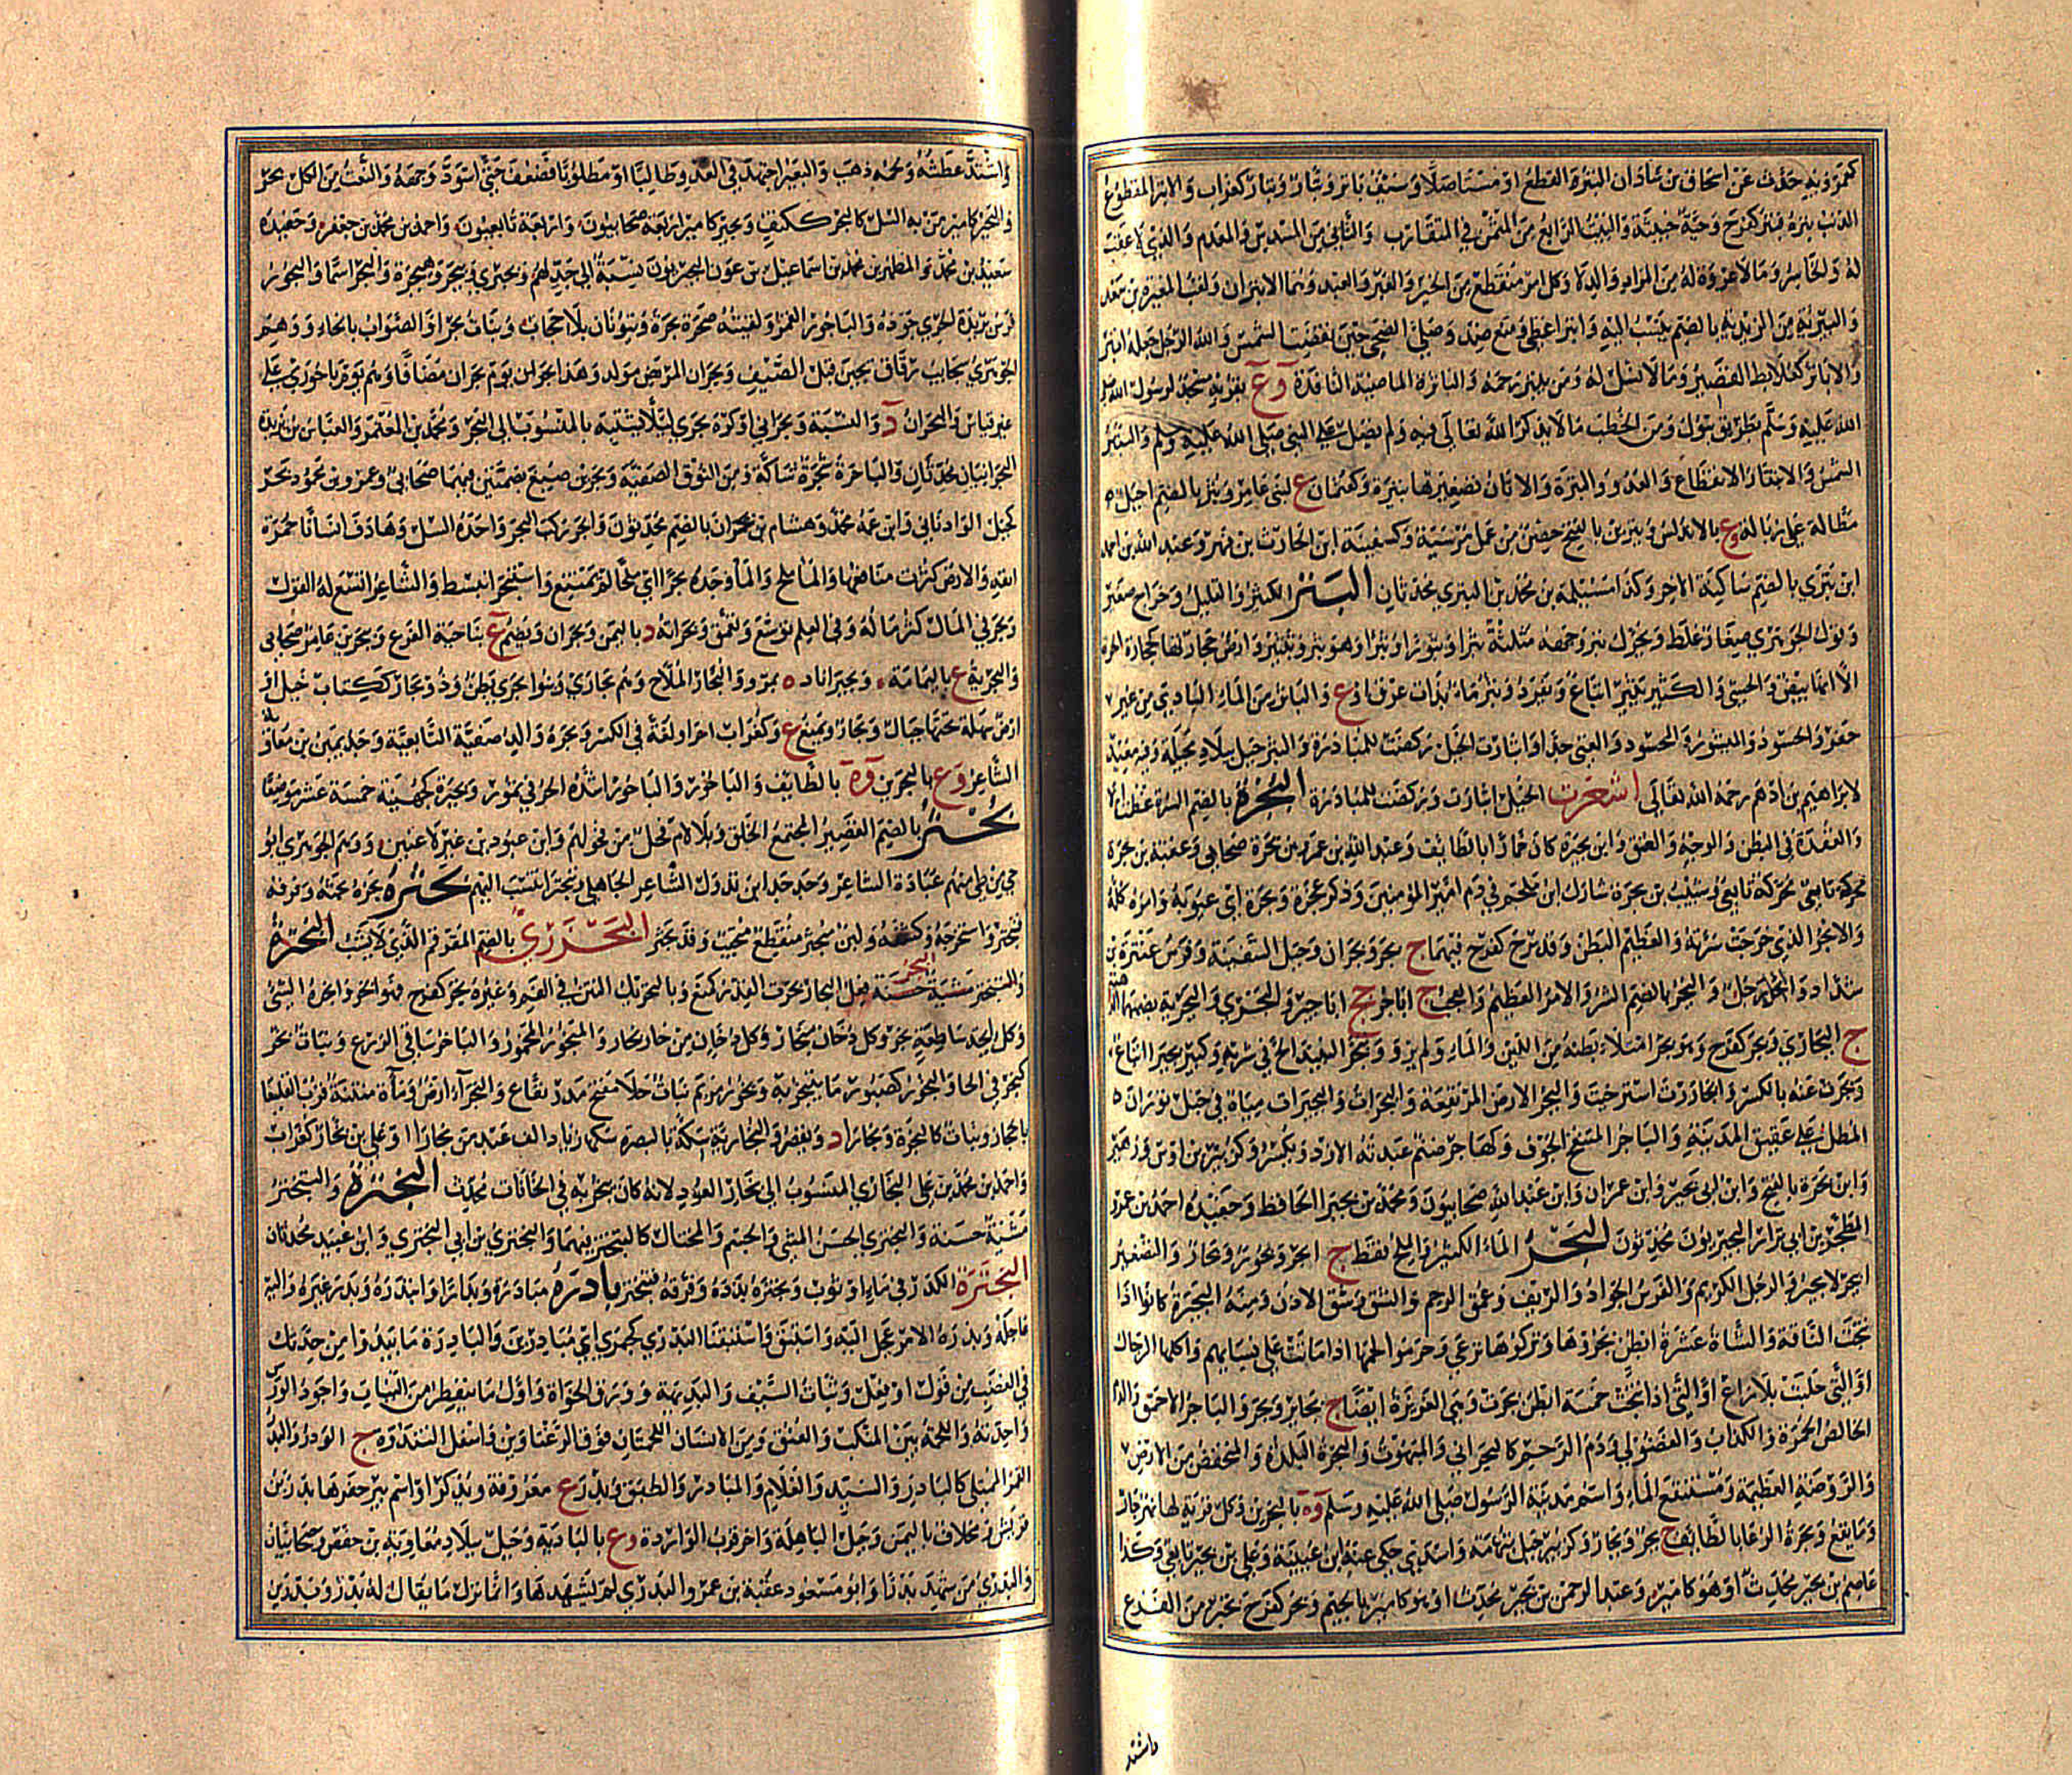 كعمرويه حدث عن اسحاق بن شاذان البتر القطع او مستاصلا وسيف باتر وبتار وبتار كغراب والابتر المقطوع
الذنب بتره فبتر كفرح وحية خبيثة والبيت الرابع من المثمن في المتقارب والثاني من المسدس والمعدم والذي لا عقب
له والخاسر وما لا عروة له من المزاد والدلاء وكل امر منقطع من الخير والعير والعبد وهما الابتران ولقب المغيرة بن سعد
والبترية من الزيدية بالضم ينسب اليه وابتر اعطى ومنع ضد وصلى الضحى حين تقضب الشمس والله الرجل جعله ابتر
والاباتر كعلابط القصير وما لا نسل له ومن يبتر رحمه والباترة الماضية النافذة وع بقربه مسجد لرسول الله صلى
الله عليه وسلم بطريق تبوك ومن الخطب ما لا يذكر الله تعالى فيه ولم يصل على النبي صلى الله عليه وسلم والبتيراء
الشمس والانبتار الانقطاع والعدو والبترة والاتان تصغيرها بتيرة وكعثمان ع لبني عامر وبتر بالضم احبل
مطالة على زبالة وع بالاندلس وبترير بالفتح حصن من عمل مرسية وكسفينة ابن الحارث بن فهر وعبد الله بن احمد
ابن بتري بالضم ساكنة الآخر وكذا مسلمة بن محمد بن البتري محدثان البثر الكثير والقليل وخراج صغير
وقول الجوهري صغار غلط ويحرك بثر وجهه مثلثة بثرا وبثورا وبثرا وهو بثر وتبثر وارض حجارتها كحجارة الحرة
الا انها بيض والحسي والكثير بثير اتباع وتفرد وبثر ماء بذات عرق او ع والباثر من الماء البادي من غير
حفر والحسود والمبثور المحسود والغني جدا وابثارت الخيل ركضت للمبادرة والبثر جبل ببلاد بجيلة وفيه تعبد
لابراهيم بن ادهم رحمه الله تعالى اشعرت الخيل ابثارت وركضت للمبادرة البجرة بالضم السرة عظمت ام لا
والعقدة في البطن والوجه والعنق وابن بجرة كان خمارا بالطائف وعبد الله بن عمر بن بجرة صحابي وعقبة بن بجرة
محركة تابعي محركة تابعي وشبيب بن بجرة شارك ابن ملجم في دم امير المؤمنين وذكر عجره وبجره اي عيوبه وامره كله
والابجر الذي خرجت سرته والعظيم البطن وقد بجر كفرح فيهما ج بجر وبجران وحبل السفينة وفرس عنترة بن
شداد والبجر بالضم الشر والامر العظيم والعجب ج اباجر ج اباجير والبجري والبجرية بضمهما الداهية
ج البجاري وبجر كفرح وهو بجر امتلأ بطنه من اللبن والماء ولم يرو وتبجر النبيذ الح في شربه وكثير بجير اتباع
وبجرت عنه بالكسر وابجاررت استرخيت والبجراء الارض المرتفعة والبجرات والبجيرات مياه في جبل شوران
المطل على عقيق المدينة والباجر المنتفخ الجوف وكهاجر صنم عبدته الازد ويكسر وكزبير بن اوس وزهير
وابن بجرة بالفتح وابن ابي بجير وابن عمران وابن عبد الله صحابيون ومحمد بن بجير الحافظ وحفيده احمد بن عمر
المطهر بن ابي نزار البجيريون محدثون البحر الماء الكثير او الملح فقط ج ابحر وبحور وبحار والتصغير
ابيحر لا بحير والرجل الكريم والفرس الجواد والريف وعمق الرحم والشق وشق الاذن ومنه البحيرة كانوا اذا
نتجت الناقة والشاة عشرة ابطن بحروها وتركوها ترعى وحرموا لحمها اذا ماتت على نسائهم واكلها الرجال
او التي خليت بلا راع او التي اذا نتجت خمسة ابطن بحرت وهي الغزيرة ايضا ج بحائر وبحر والباحر الاحمق والدم
الخالص الحمرة والكذاب والفضولي ودم الرحم كالبحراني والمبهوت والبحرة البلدة والمنخفض من الارض
والروضة العظيمة ومستنقع الماء واسم مدينة الرسول صلى الله عليه وسلم وة بالبحرين وكل قرية لها نهر جار
وماء ناقع وبحرة الرغا بالطائف ج بحر وبحار وكزبير جبل بتهامة واسدي حكى عنه ابن عيينة وعلي بن بحير تابعي وكذا
عاصم بن بحير محدث او هو كامير وعبد الرحمن بن بحير محدث او هو كامير بالجيم وبحر كفرح تحير من الفزع
واشتد
واشتد عطشه ولحمه ذهب والبعير اجتهد في العدو طالبا او مطلوبا فضعف حتى اسود وجهه والنعت من الكل بحر
والبحير كامير من به السل كالبحر ككتف وبحير كامير اربعة صحابيون واربعة تابعيون واحمد بن محمد بن جعفر وحفيده
سعيد بن محمد والمطهر بن محمد بن اسماعيل بن عون البحيريون نسبة الى جدهم وبحيرى وبيحر وبيحرة والبحر اسما والبحور
فرس يزيده الجري جودة والباحور القمر ولقيته صحرة بحرة وينونان بلا حجاب وبنات بحر او الصواب بالخاء ووهم
الجوهري سحاب رقاق يجئن قبل الصيف وبحران المريض مولد وهذا يوم بحران مضافا ويوم باحوري على
غير قياس والبحران د والنسبة بحري وبحراني او كره بحري لئلا يشتبه بالمنسوب الى البحر ومحمد بن المعتمر والعباس بن يزيد
البحرانيان محدثان والباحرة شجرة شاكة ومن النوق الصفية وبحر بن ضبع بضمتين فيهما صحابي وعمرو بن محمود بحر
كجبل الواذناني وابن عمه محمد وهشام بن بحران بالضم محدثون وابحر ركب البحر واخذه السل وصادف انسانا حمرة
انفه والارض كثرت مناقعها والماء ملح والماء وجده بحرا اي ملحا لم يسغ واستبحر انبسط والشاعر اتسع له القول
وتبحر في المال كثر ماله وفي العلم توسع وتعمق وبحرانة د باليمن وبحران ويضم ع بناحية الفرع وبحر بن عامر صحابي
والبحرية ع باليمامة وبحير اباد ه بمرو والبحار الملاح وهم بحاري وبنو بحري بطن وذو بحار ككتاب جبل او
ارض سهلة تحفها جبال وبحار ويمنع ع وكغراب اخر او لغة في الكسر وبحرة والد صفية التابعية وجد يمين بن معاوية
الشاعر وع بالبحرين وة بالطائف والباحور والباحوراء شدة الحر في تموز وبحيرة كجهينة خمسة عشر موضعا
بحتر بالضم القصير المجتمع الخلق وبلا لام فحل من فحولهم وابن عبود بن عنين لا عنين ووهم الجوهري ابو
حي من طي منهم عبادة الشاعر وجد جد ابن تدول الشاعر الجاهلي وتبحتر انتسب اليهم بحثره بحثه وفرقه
فتبحثر واستخرجه وكشفه ولبن مبحثر منقطع متحبب وقد تبحثر البحدري بالضم المقرقم الذي لا يشب البخر
فعل البخار بخرت القدر كمنع وبالتحريك النتن في الفم وغيره بخر كفرح فهو ابخر وابخره الشيء
وكل رائحة ساطعة بخر وكل دخان بخار وكل دخان من حار بخار والمبخور المخمور والباخر ساقي الزرع وبنات بخر
كبحر في الحاء والبخور كصبور ما يتبخر به وبخور مريم نبات جلاء مفتح مدر نفاع والبخراء ارض وماءة منتنة قرب القليعة
بالحجاز ونبات كالبخرة وبخارا د ويقصر والبخارية سكة بالبصرة سكنها زياد الف عبد من بخارا او علي بن بخار كغراب
واحمد بن محمد بن علي البخاري المنسوب الى بخار العود لانه كان يبخر به في الخانات محدث البخترة والتبختر
مشية حسنة والبختري الحسن المشي والجسم والمختال كالبختير فيهما والبختري بن ابي البختري وابن عبيد محدثان
البخثرة الكدر في ماء او ثوب وبخثره بدده وفرقه فتبخثر بادره مبادرة وبدارا وابتدره وبدر غيره واليه
عاجله وبدره الامر عجل اليه واستبق واستبقنا البدرى كجمزى اي مبادرين والبادرة ما يبدو من حدتك
في الغضب من قول او فعل وشباة السيف والبديهة وورق الحوأة واول ما يتفطر من النبات واجود الورس
واحدثه واللحمة بين المنكب والعنق ومن الانسان اللحمتان فوق الرغثاوين واسفل الثندوة ج البوادر والبدر
القمر الممتلي كالبادر والسيد والغلام والمبادر والطبق وبدر ع معروفة ويذكر او اسم بئر حفرها بدر بن
قريش ومخلاف باليمن وجبل لباهلة واخر قرب الواردة وع بالبادية وجبل ببلاد معاوية بن حفص وصحابيان
والبدري من شهد بدرا وابو مسعود عقبة بن عمرو البدري لم يشهدها وانما نزل ماء يقال له بدر وبدر بن